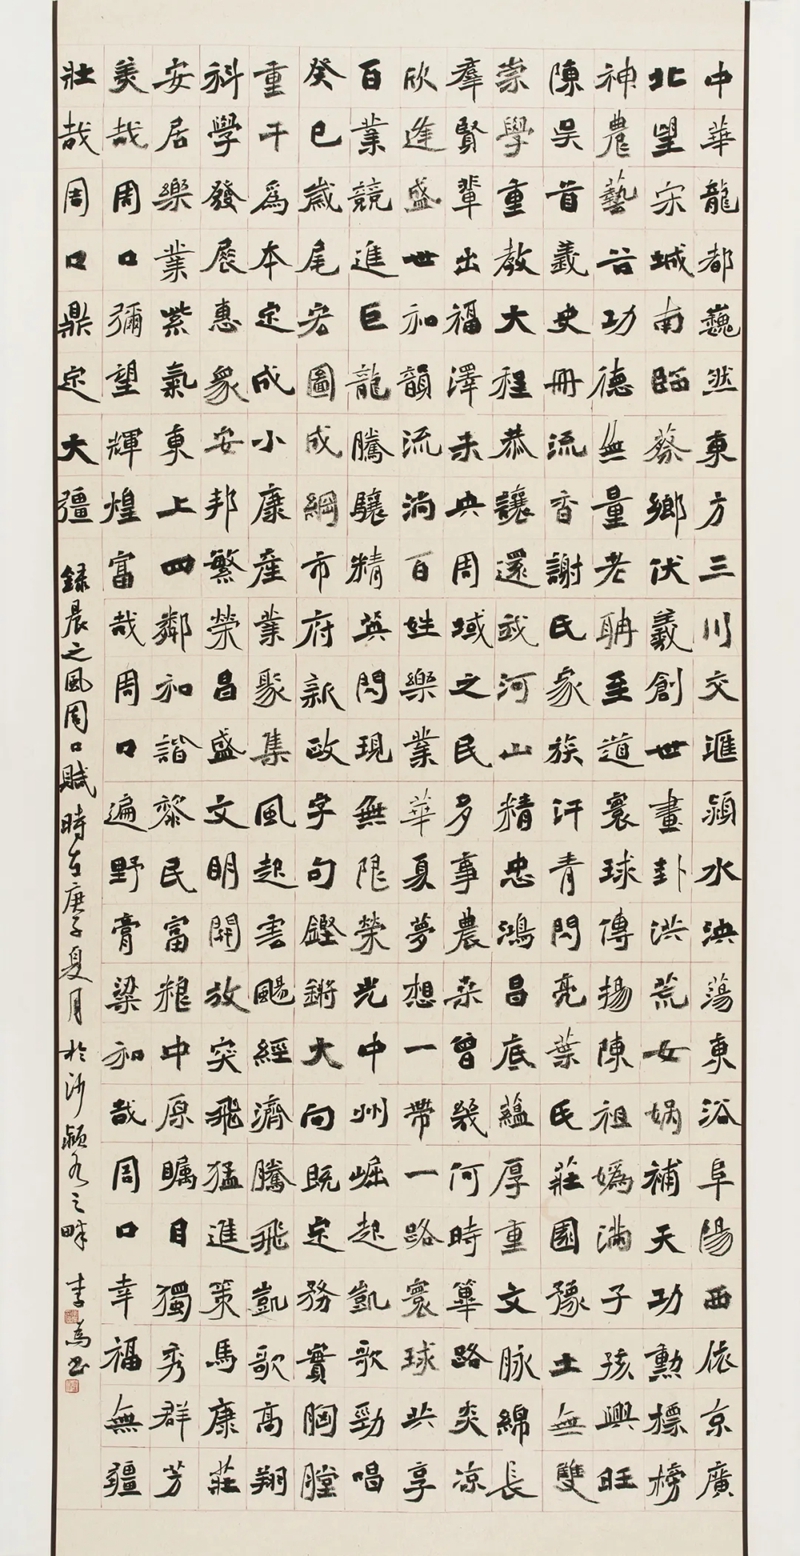 中華龍都巍然東方三川交滙潁水泱蕩東浴阜陽西依京廣
北望宋城南臨蔡鄉伏羲創世畫卦洪荒女媧補天功勳標榜
神農藝谷功德無量老聃至道寰球傳揚陳祖媯滿子孩興旺
陳吳首義史冊流香謝氏家族汗青閃亮葉氏莊園豫土無雙
崇學重教大程恭讓還武河山精忠鴻昌底蘊厚重文脉綿長
羣賢輩出福澤未央周域之民多事農桑曾幾何時篳路炎涼
欣逢盛世和韻流淌百姓樂業華夏夢想一帶一路寰球共享
百業競進巨龍騰驤精英閃現無限榮光中州崛起凱歌勁唱
癸巳歲尾宏圖成綱市府新政字句鏗鏘大向既定務實胸膛
重干為本定成小康產業聚集風起雲颺經濟騰飛凱歌高翔
科學發展惠眾安邦繁榮昌盛文明開放突飛猛進策馬康莊
安居樂業紫氣東上四鄰和諧黎民富粮中原矚目獨秀群芳
美哉周口彌望輝煌富哉周口遍野膏粱和哉周口幸福無疆
壯哉周口鼎定大疆 録晨之風周口賦時在庚子夏月於沙潁水之畔 李為书